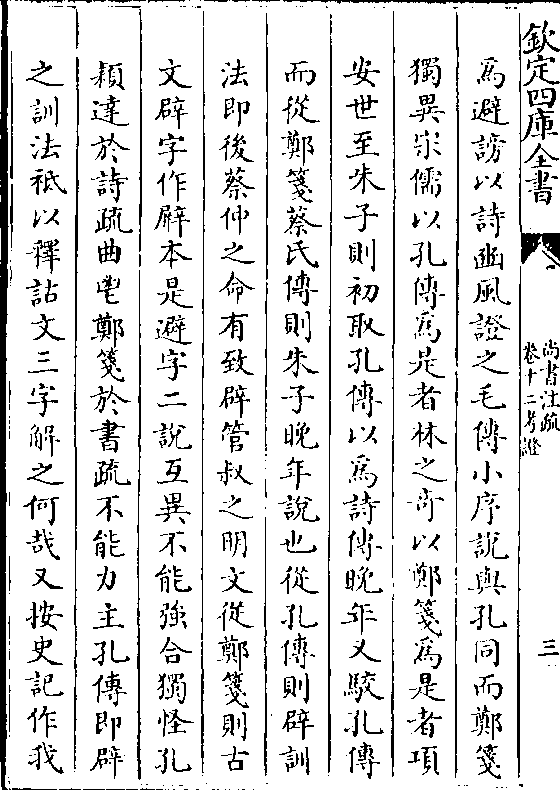 欽定四庫全書
尚書注疏
卷十二考證
三
爲避謗以詩豳風證之毛傳小序說與孔同而鄭箋
獨異宋儒以孔傳爲是者林之奇以鄭箋爲是者項
安世至朱子則初取孔傳以爲詩傳晚年又駁孔傳
而從鄭箋蔡氏傳則朱子晚年說也從孔傳則辟訓
法即後蔡仲之命有致辟管叔之明文從鄭箋則古
文辟字作𨐨本是避字二說互異不能強合獨怪孔
穎達於詩疏曲申鄭箋於書疏不能力主孔傳即辟
之訓法祗以釋詁文三字解之何哉又按史記作我